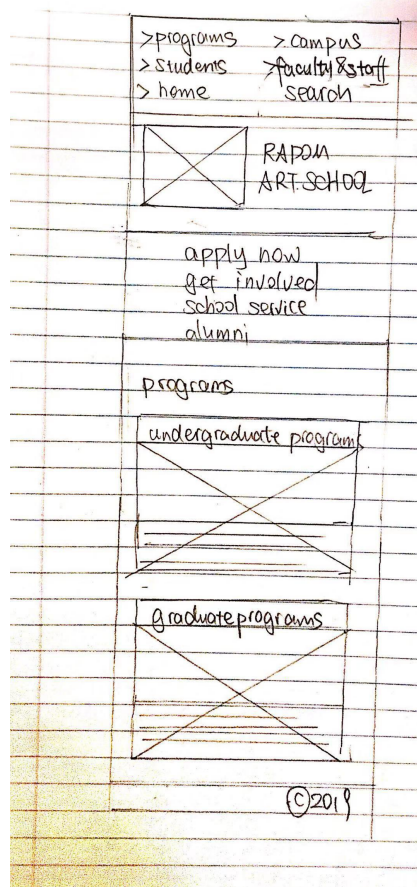 >programs >campus
>students >faculty&staff
>home search
RADOM
ART.SCHOOL
apply now
get involved
school service
alumni
programs
undergraduate programs
graduate programs
©2019